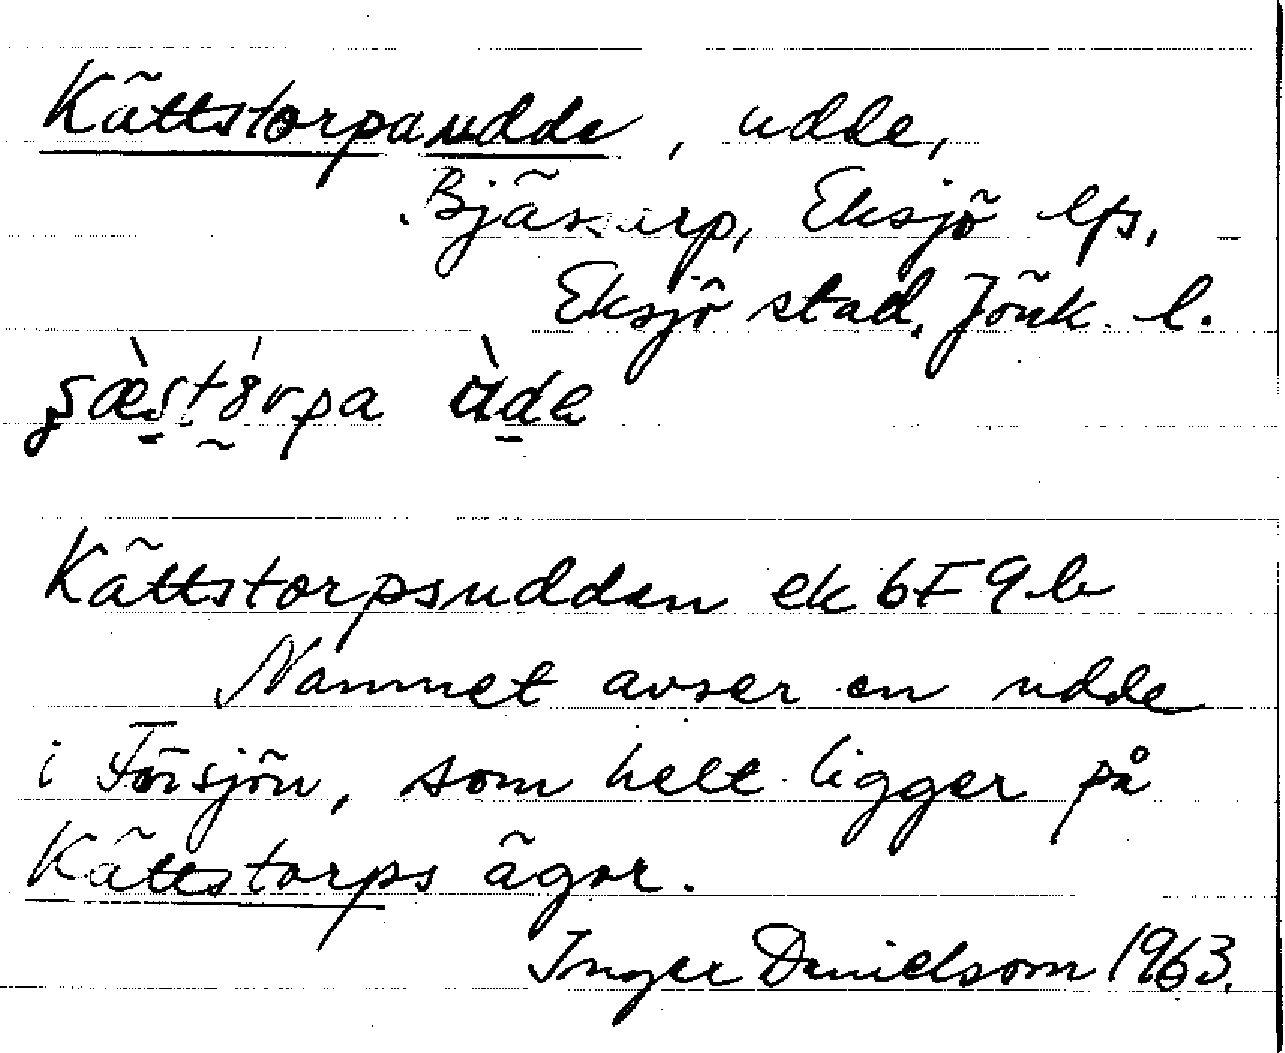 Kättstorpaudde, udde,
Eksjö lfs,
Eksjö stad, Jönk. l.
Kättstorpsudden ek 6F9b
Namnet avser en udde
i Försjön, som helt ligger på
Kättstorps ägor.
Inger Danielsom 1963.